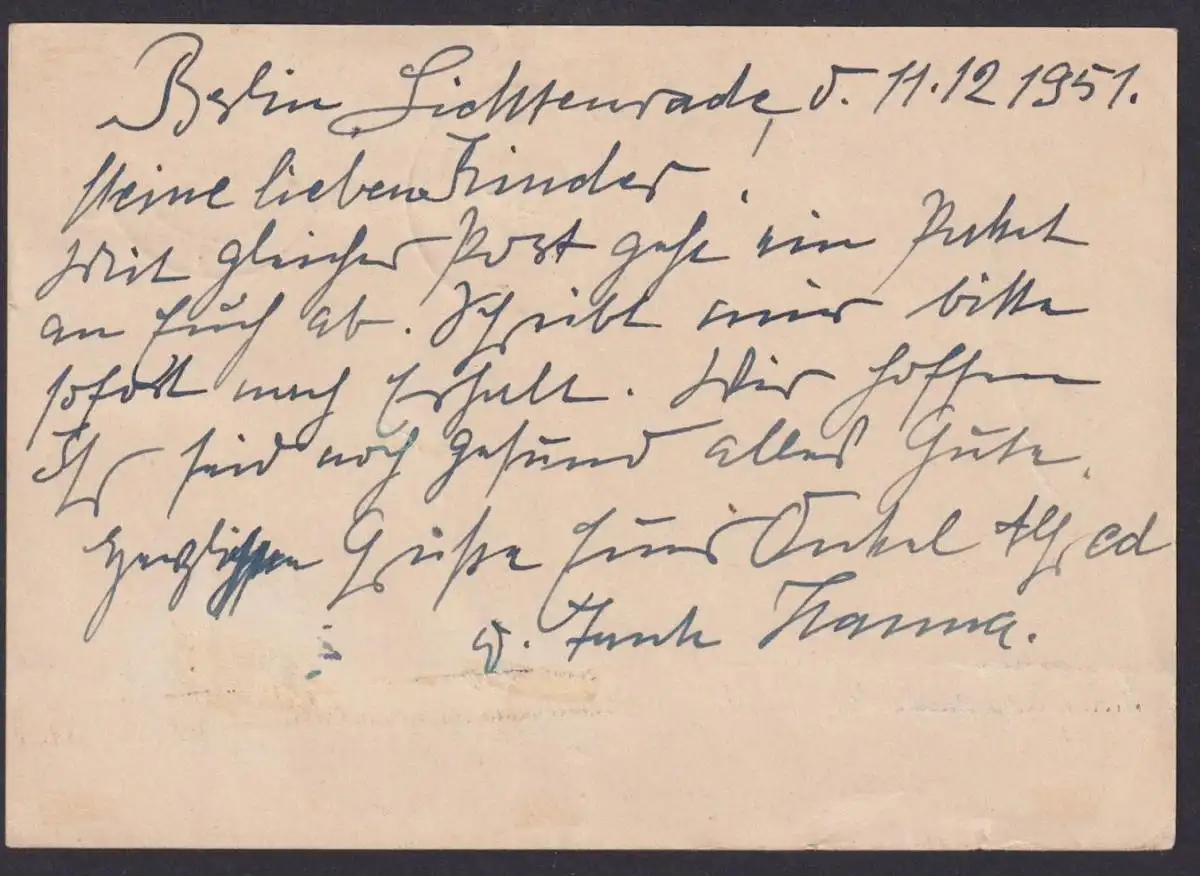 Berlin Lichtenrade, d. 11.12 1951.
Meine lieben Kinder!
Mit gleicher Post geht ein Paket
an Euch ab. Schreibt mir bitte
sofort nach Erhalt. Wir hoffen
Ihr seid noch gesund alles Gute.
Herzlichen Grüße Euer Onkel Alfred
u. Tante Hanna.